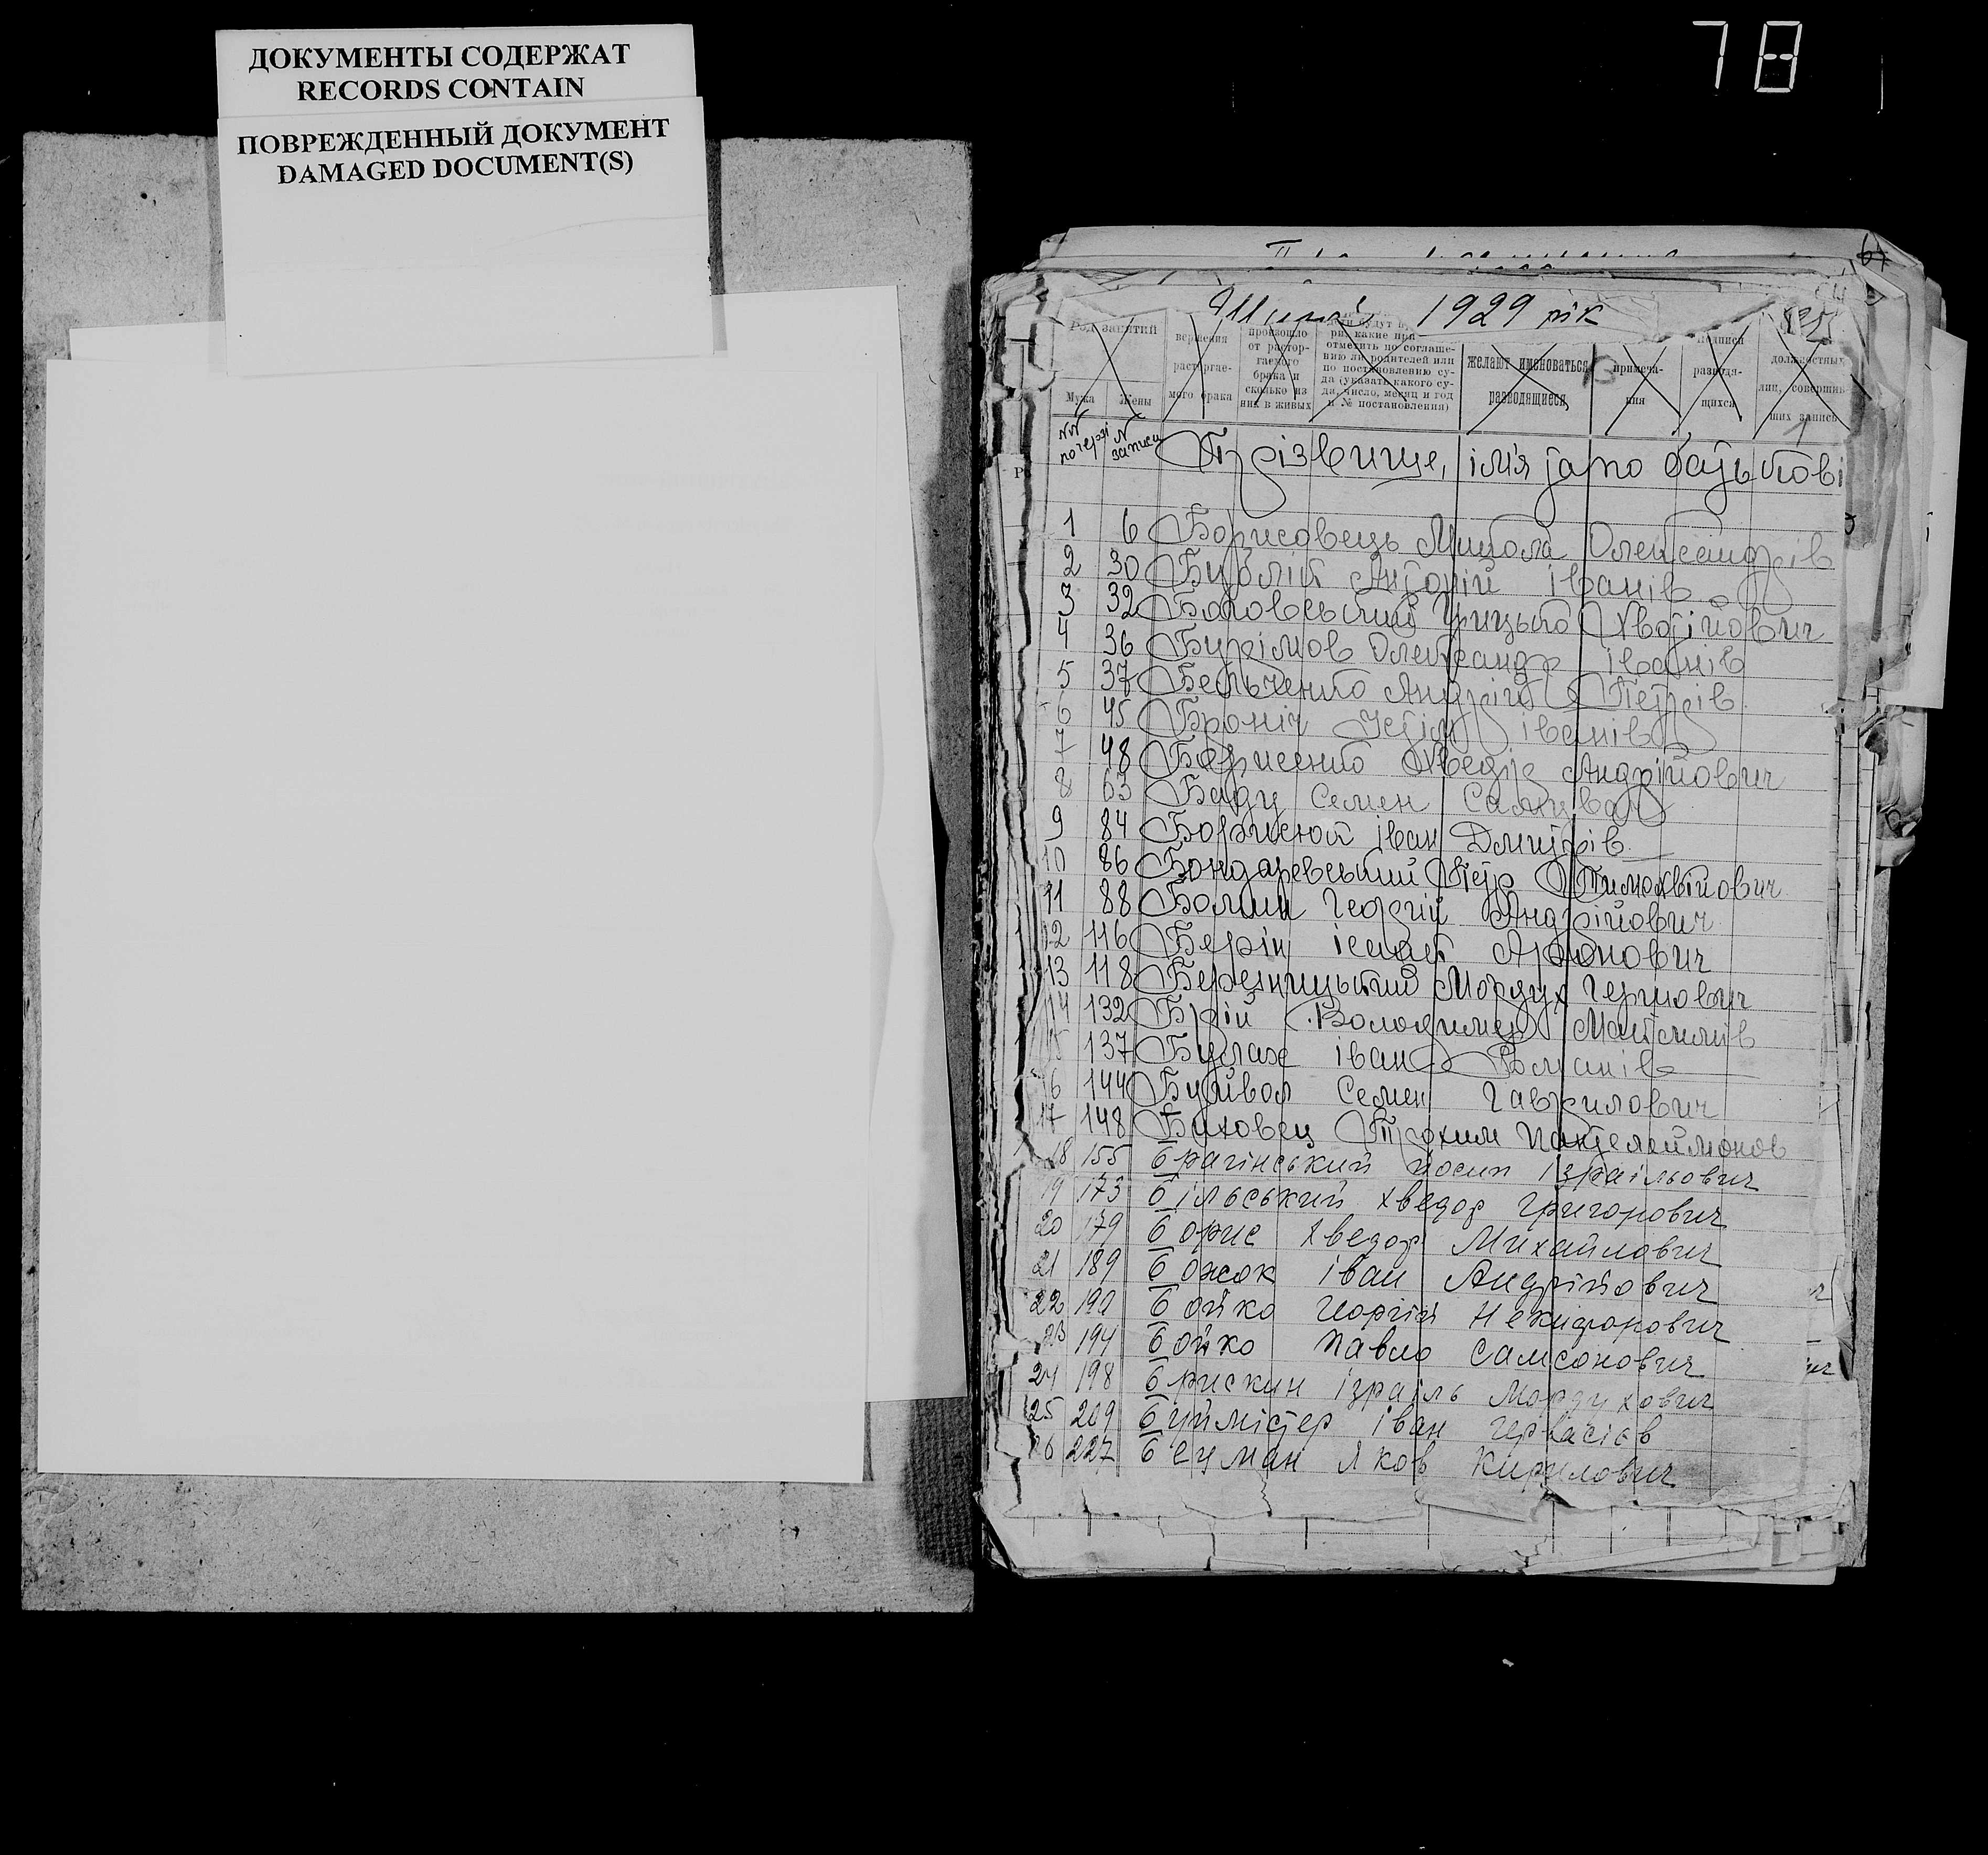 ДОКУМЕНТЫ СОДЕРЖАТ
RECORDS CONTAIN
ПОВРЕЖДЕННЫЙ ДОКУМЕНТ
DAMAGED DOCUMENT(S)
78
1929 рік
Род занятий
Мужа
Жены
расторгае-
мого брака
произошло
от растор-
гаемого
брака и
сколько из
них в живых
отметить по соглаше-
нию ли родителей или
по постановлению су-
да (указать какого су-
да, число, месяц и год
и № постановления)
желают именоваться
разводящиеся
примеча-
ния
разводя-
щихся
должностных
лиц, совершив-
ших запись
№ записи Прізвище, ім'я та по батькові
1 6 Борисовець Микола Олександрів
2 30 Антоній Іванів
3 32 Грицько Хвотійович
4 36 Бурімов Олександр Іванів
5 37 Бельченко Андрій Петрів
6 45 Броніч Устім Іванів
7 48 Борисенко Хведір Андрійович
8 63 Баду Семен
9 84 Борисюк Іван Дмитрів
10 86 Бондаревський Пётр Тимохвійович
11 88 Георгій Андрійович
12 116 Берін Ісаак Аронович
13 118 Бережницький Мордух Гершович
14 132 Брій Володимир Максимів
15 137 Буглак Іван Романів
16 144 Буйвол Семен Гаврилович
17 148 Биховец Трохим Пантелеймонов
18 155 Брагінський Йосип Ізраільович
19 173 Більський Хведор Григорович
20 179 Борис Хведор Михайлович
21 189 Божок Іван Андрійович
22 190 Бойко Георгій Некифорович
23 194 Бойко Павло Самсонович
24 198 Брискин Ізраіль Мордухович
25 209 Буймістер Іван Гервасієв
26 227 Бецман Яков Кирилович